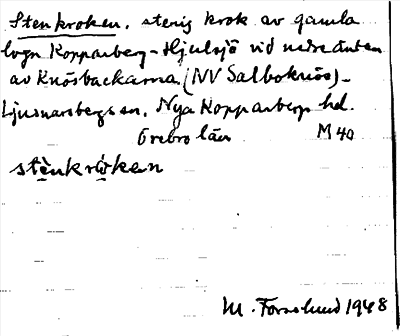 Stenkroken, stenig krok av gamla
vägn Kopparberg-Hjulsjö vid nedre änden
av Knösbackarna (NV Salboknös)-
Ljusnarsbergs sn, Nya Kopparbergs hd.
Örebro län M 40
stènkrö̀ken
M. Forslund 1948